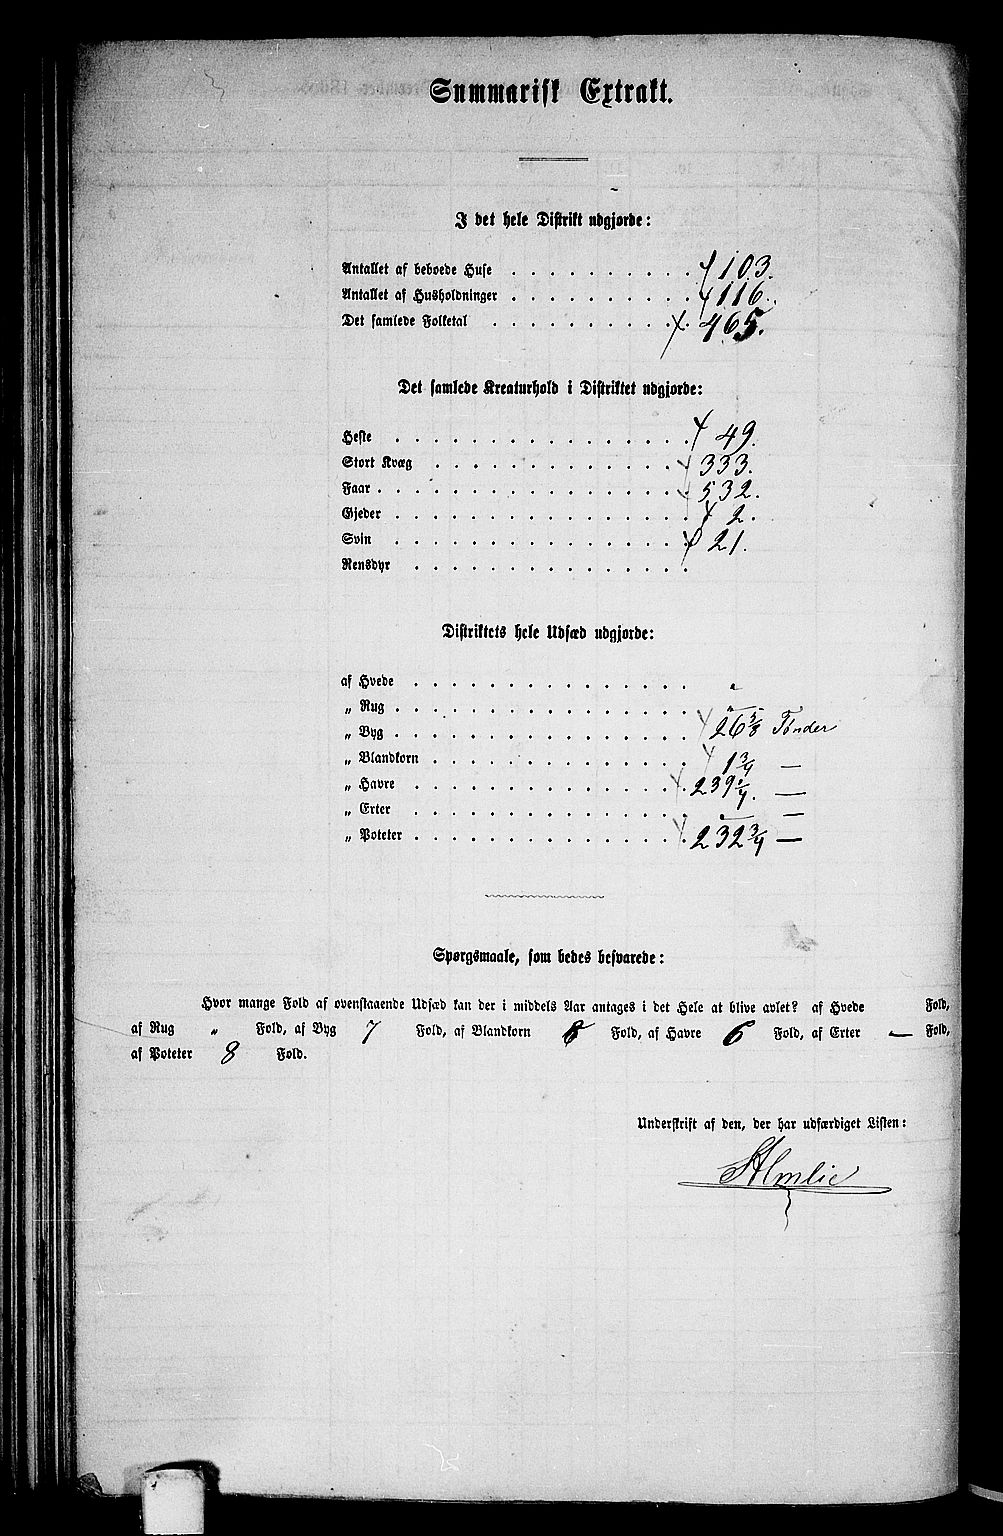 Summarisk Extrakt.
I det hele Distrikt udgjorde:
Antallet af beboede Huse . . . . . . . . . . 103.
Antallet af Husholdninger . . . . . . . . . . 116.
Det samlede Folketal . . . . . . . . . . . 465.
Det samlede Kreaturhold i Distriktet udgjorde:
Heste . . . . . . . . . . . . . . . . 49.
Stort Kvæg . . . . . . . . . . . . . . 333.
Faar . . . . . . . . . . . . . . . . . 532.
Gjeder . . . . . . . . . . . . . . . . 2.
Svin . . . . . . . . . . . . . . . . 21.
Rensdyr . . . . . . . . . . . . . . .
Distriktets hele Udsæd udgjorde:
af Hvede . . . . . . . . . . . . . . . "
„ Rug . . . . . . . . . . . . . . . . "
„ Byg . . . . . . . . . . . . . . . . 26 5/8 Tønder
„ Blandkorn . . . . . . . . . . . . . . 1 3/4 —
„ Havre . . . . . . . . . . . . . . . 239 1/4. —
„ Erter . . . . . . . . . . . . . . . — —
„ Poteter . . . . . . . . . . . . . . . 232 3/4 —
Spørgsmaale, som bedes besvarede:
Hvor mange Fold af ovenstaaende Udsæd kan der i middels Aar antages i det Hele at blive avlet? af Hvede Fold,
af Rug " Fold, af Byg 7 Fold, af Blandkorn Fold, af Havre 6 Fold, af Erter — Fold,
af Poteter 8 Fold.
Underskrift af den, der har udfærdiget Listen:
Almlie